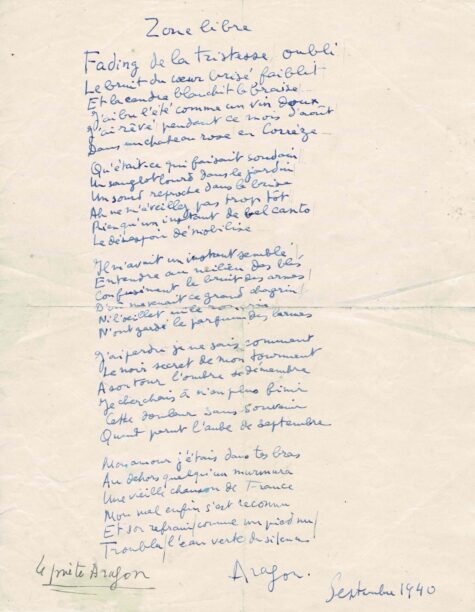 Zone libre
Fading de la tristesse oubli
Le bruit du cœur brisé faiblit
Et la cendre blanchit la braise
J'ai bu l'été comme un vin doux
J'ai rêvé pendant ce mois d'août
Dans un chateau rose en Corrèze
Qu'était-ce qui faisait soudain
Un sanglot lourd dans le jardin
Un sourd reproche dans la brise
Ah ne m'éveillez pas trop tôt
Rien qu'un instant de bel canto
Le désespoir démobilise
Il m'avait un instant semblé
Entendre au milieu des blés
Confusément le bruit des armes
D'où me venait ce grand chagrin
Ni l'œillet ni le romarin
N'ont gardé le parfum des larmes
J'ai perdu je ne sais comment
Le noir secret de mon tourment
A son tour l'ombre se démembre
Je cherchais à n'en plus finir
Cette douleur sans souvenir
Quand parut l'aube de septembre
Mon amour j'étais dans tes bras
Au dehors quelqu'un murmura
Une vieille chanson de France
Mon mal enfin s'est reconnu
Et son refrain comme un pied nu
Troubla l'eau verte du silence
le poète Aragon
Aragon.
Septembre 1940